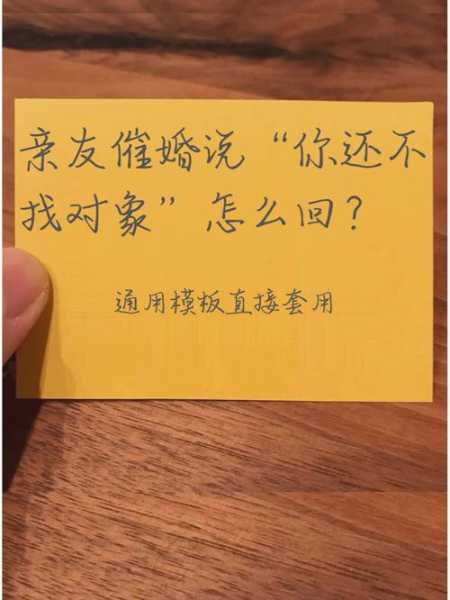 亲友催婚说“你还不
找对象”怎么回？
通用模板直接套用